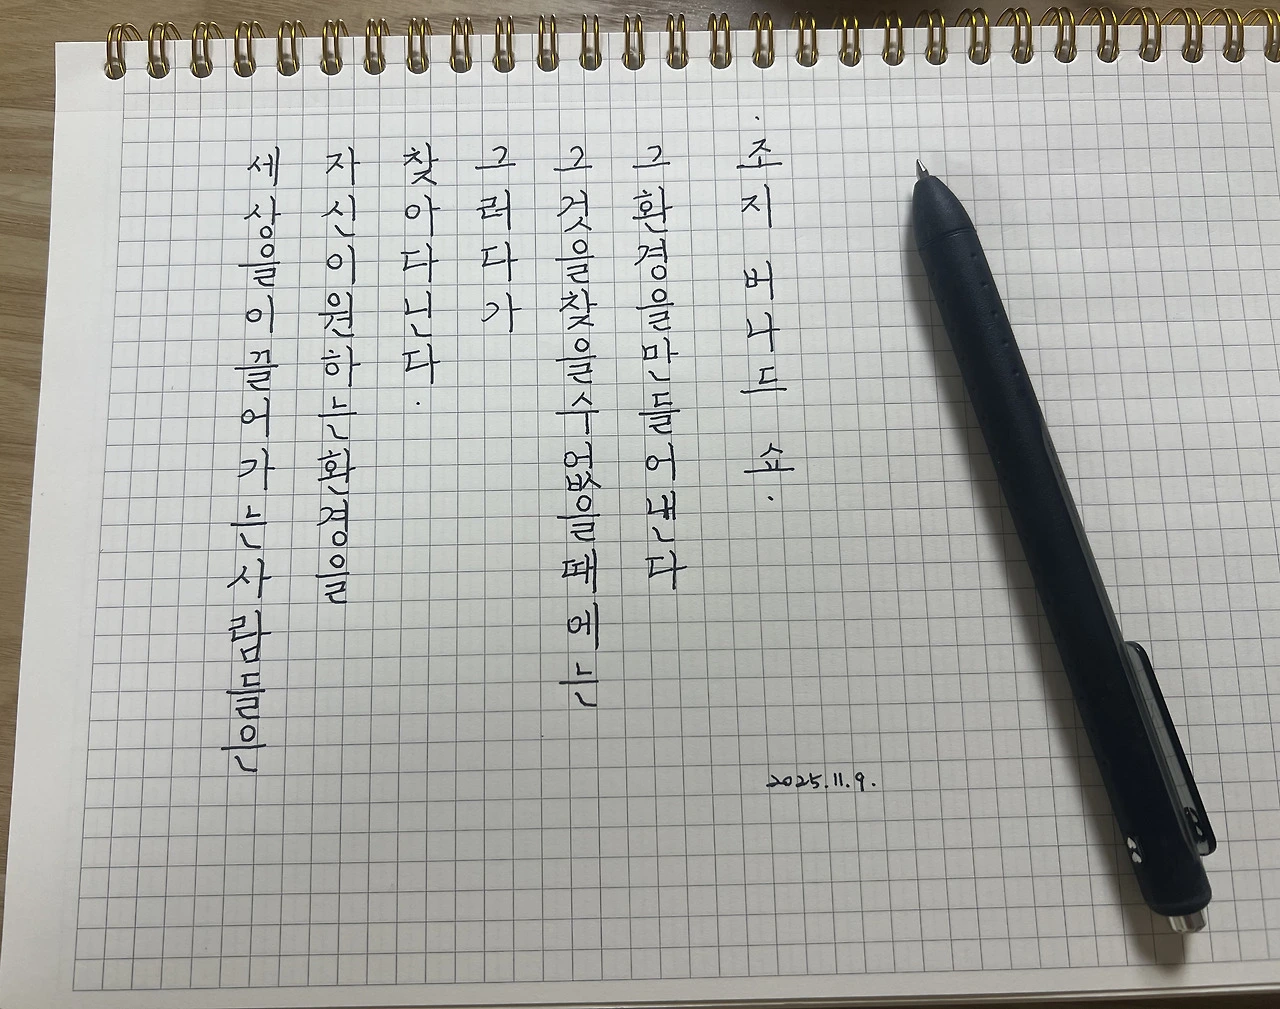 세상을이끌어가는사람들은
자신이원하는환경을
찾아다닌다.
그러다가
그것을찾을수없을때에는
그환경을만들어낸다
· 조지 버나드 쇼 ·
2025.11.9.